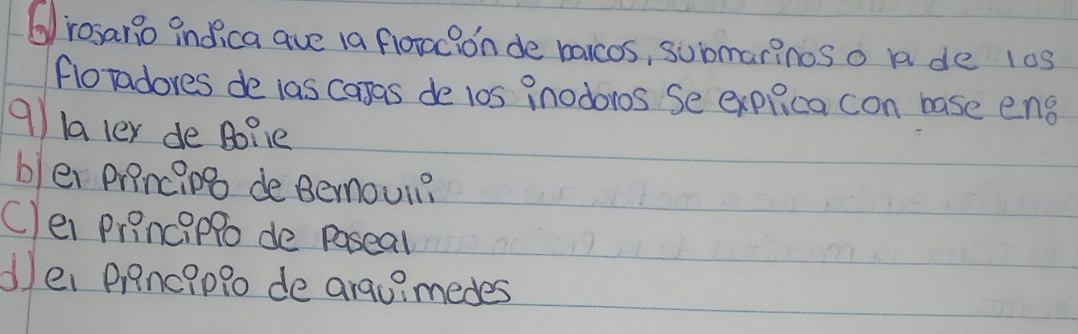 6) rosario indica que la flotación de barcos, submarinos o la de los
flotadores de las cajas de los inodoros se explica con base en:
a) la ley de Boile
b) el principio de Bernoulli
c) el principio de Paseal
d) el principio de arquimedes